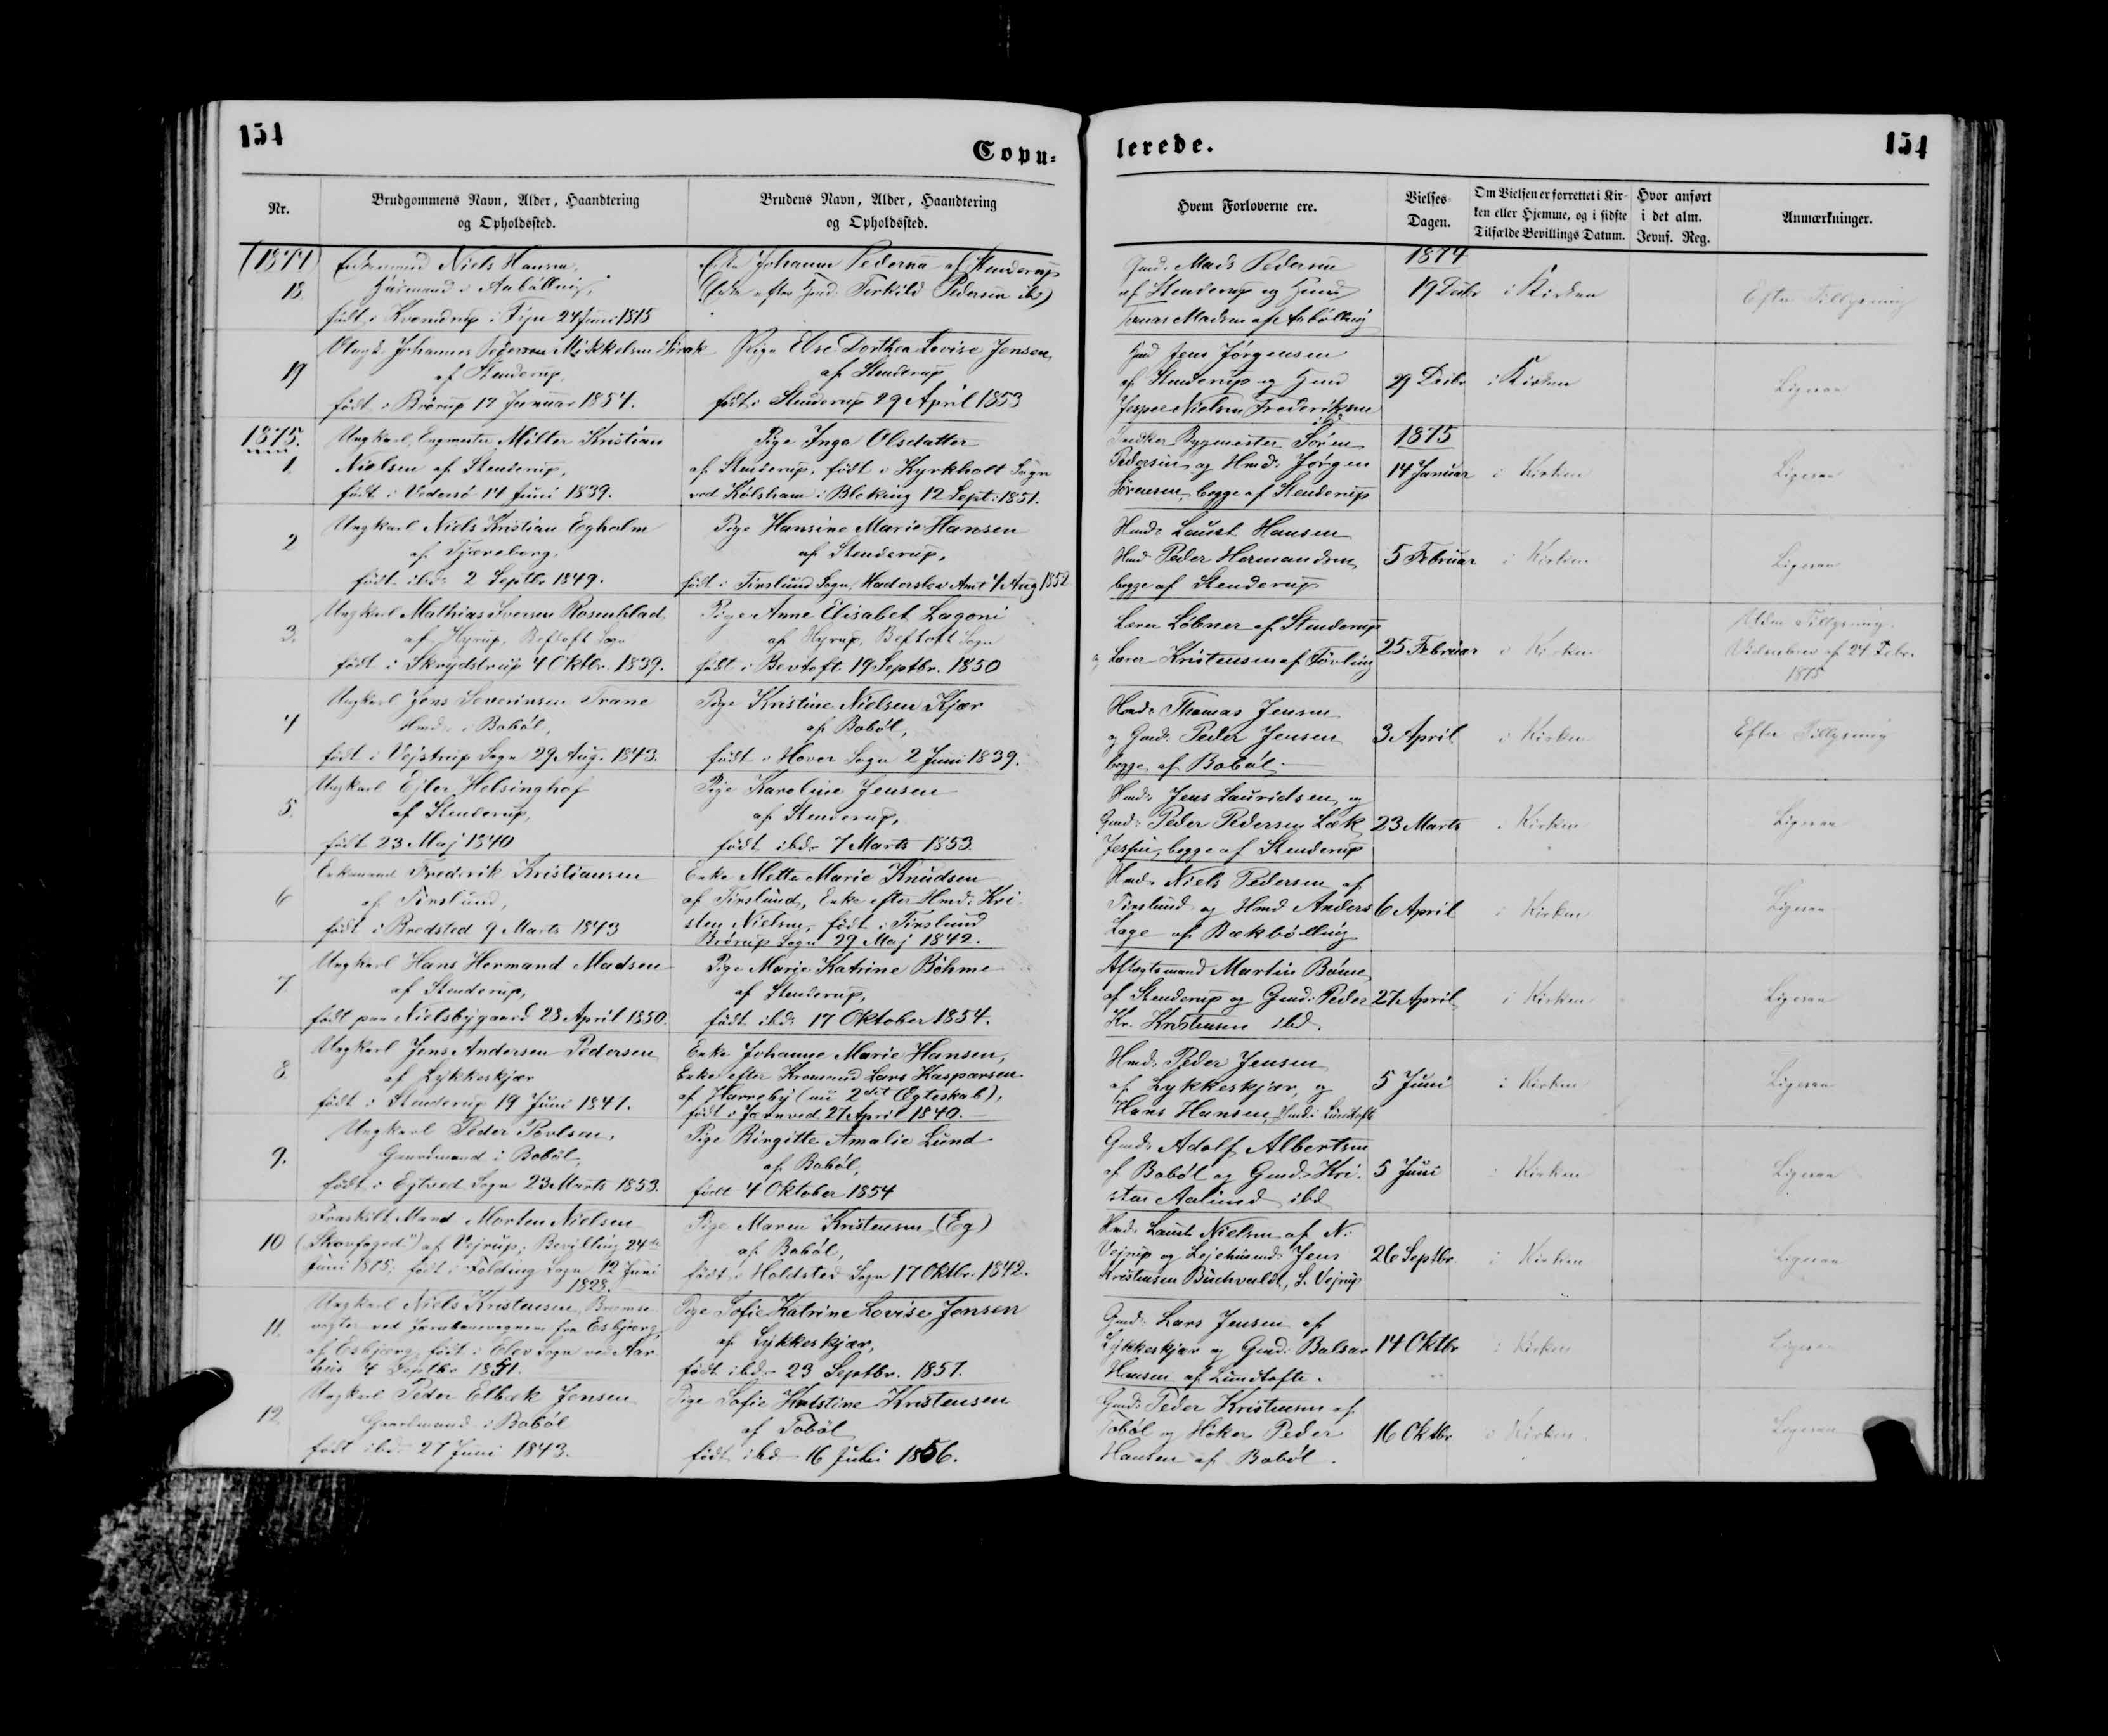 154
Copu-
Nr.
Brudgommens Navn, Alder, Haandtering
og Opholdssted.
Brudens Navn, Alder, Haandtering
og Opholdssted.
(1874)
18.
Enkemand Niels Hansen,
Husmand i Anbølling,
født i Kværndrup i Fyn 24 Juni 1815
Enke Johanne Pedersen af Stenderup
(Enke efter Hmd. Terkild Pedersen ibd)
19
Ungk. Johannes Pedersen Mikkelsen
af Stenderup,
født i Brørup 17 Januar 1854.
Pige Else Dorthea Lovise Jensen,
af Stenderup
født i Stenderup 29 April 1853
1875.
1.
Ungkarl, Engmester Miller Kristian
Nielsen af Stenderup,
født i Vedersø 14 Juni 1839.
Pige Inga Olsdatter
af Stenderup, født i Kyrkholt Sogn
ved Kølsham i Bleking 12 Sept: 1851.
2
Ungkarl Niels Kristian Egholm
af Tjæreborg,
født ibd. 2 Septbr 1849.
Pige Hansine Marie Hansen
af Stenderup,
født i Tirslund Sogn, Haderslev Amt 4 Aug 1852
3.
Ungkarl Mathias Iversen Rosenblad
af Hyrup, Beftoft Sogn
født i Skrydstrup 4 Oktbr. 1839.
Pige Anne Elisabet Lagoni
af Hyrup, Beftoft Sogn
født i Bevtoft 19 Septbr. 1850
4
Ungkarl Jens Severinsen Trane
Hmd. i Bobøl,
født i Vejstrup Sogn 29 Aug. 1843.
Pige Kristine Nielsen Kjær
af Bobøl,
født i Hover Sogn 2 Juni 1839.
5.
Ungkarl Ejler Helsinghof
af Stenderup,
født 23 Maj 1840
Pige Karoline Jensen
af Stenderup,
født ibd. 7 Marts 1853.
6
Enkemand Frederik Kristiansen
af Tirslund,
født i Bredsted 9 Marts 1843
Enke Mette Marie Knudsen
af Tirslund, Enke efter Hmd. Kri-
sten Nielsen, født i Tirslund
Brørup Sogn 29 Maj 1842.
7.
Ungkarl Hans Hermand Madsen
af Stenderup,
født paa Nielsbygaard 23 April 1850.
Pige Marie Katrine Böhme
af Stenderup,
født ibd. 17 Oktober 1854.
8.
Ungkarl Jens Andersen Pedersen
af Lykkeskjær
født i Stenderup 19 Juni 1847.
Enke Johanne Marie Hansen,
Enke efter Kromand Lars Kasparsen
af Harreby (nu 2det Egteskab),
født i Jernved 27 April 1840.
9.
Ungkarl Peder Povlsen,
Gaardmand i Bobøl,
født i Egtved Sogn 23 Marts 1853.
Pige Birgitte Amalie Lund
af Bobøl,
født 4 Oktober 1854
10
Fraskilt Mand Morten Nielsen
("Skovfoged") af Vejrup; Bevilling 24de
Juni 1875; født i Folding Sogn 12 Juni
1828.
Pige Maren Kristensen (Eg)
af Bobøl,
født i Holdsted Sogn 17 Oktbr. 1842.
11.
Ungkarl Niels Kristensen, Bremse-
vogter ved Jernbanevognene fra Esbjærg,
af Esbjærg, født i Elev Sogn ved Aar-
hus 4 Septbr 1851.
Pige Sofie Katrine Lovise Jensen
af Lykkeskjær,
født ibd. 23 Septbr. 1857.
12.
Ungkarl Peder Elbæk Jensen
Gaardmand i Bobøl
født ibd. 27 Juni 1843.
Pige Sofie Kristine Kristensen
af Tobøl
født ibd 16 Juli 1856.
154
lerede.
Hvem Forloverne ere.
Vielses-
Dagen.
Om Vielsen er forrettet i Kir-
ken eller Hjemme, og i sidste
Tilfælde Bevillings Datum.
Hvor anført
i det alm.
Jevnf. Reg.
Anmærkninger.
Gmd. Mads Pedersen
af Stenderup og Hmd
Madsen af Anbølling
1874
19 Decbr
i Kirken
Efter Tillysning
Hmd Jens Jørgensen
af Stenderup og Hmd
Jesper Nielsen Frederiksen
ibd.
29 Decbr
i Kirken
Ligesaa
Bygmester Søren
Pedersen og Hmd. Jørgen
Sørensen, begge af Stenderup
1875
14 Januar
i Kirken
Ligesaa
Hmd. Laust Hansen
Hmd Peder Hermandsen,
begge af Stenderup
5 Februar
i Kirken
Ligesaa
Lærer Løbner af Stenderup
og Lærer Kristensen af Føvling
25 Februar
i Kirken
Uden Tillysning.
Vielsesbrev af 24 Febr.
1875
Hmd. Thomas Jensen
og Gmd. Peder Jensen
begge af Bobøl.
3 April
i Kirken
Efter Tillysning
Hmd. Jens Lauridsen og
Gmd. Peder Pedersen Læk
Jessen, begge af Stenderup
23 Marts
i Kirken
Ligesaa
Hmd. Niels Pedersen af
Tirslund og Hmd Anders
Lage af Bækbølling
6 April
i Kirken
Ligesaa
Aftægtsmand Martin Böhme,
af Stenderup og Gmd. Peder
Kr. Kristensen ibd.
27 April
i Kirken
Ligesaa
Hmd. Peder Jensen
af Lykkeskjær, og
Hans Hansen, Hmd. i Lundtofte
5 Juni
i Kirken
Ligesaa
Gmd. Adolf Albertsen
af Bobøl og Gmd. Kri-
sten Aalund ibd
5 Juni
i Kirken
Ligesaa
Hmd. Laust Nielsen af N.
Vejrup og Lejehusmd. Jens
Kristensen Buchvaldt, S. Vejrup
26 Septbr.
i Kirken
Ligesaa
Gmd. Lars Jensen af
Lykkeskjær og Gmd. Balsar
Hansen af Lundtofte.
14 Oktbr
i Kirken
Ligesaa
Gmd. Peder Kristensen af
Tobøl og Høker Peder
Hansen af Bobøl.
16 Oktbr
i Kirken
Ligesaa